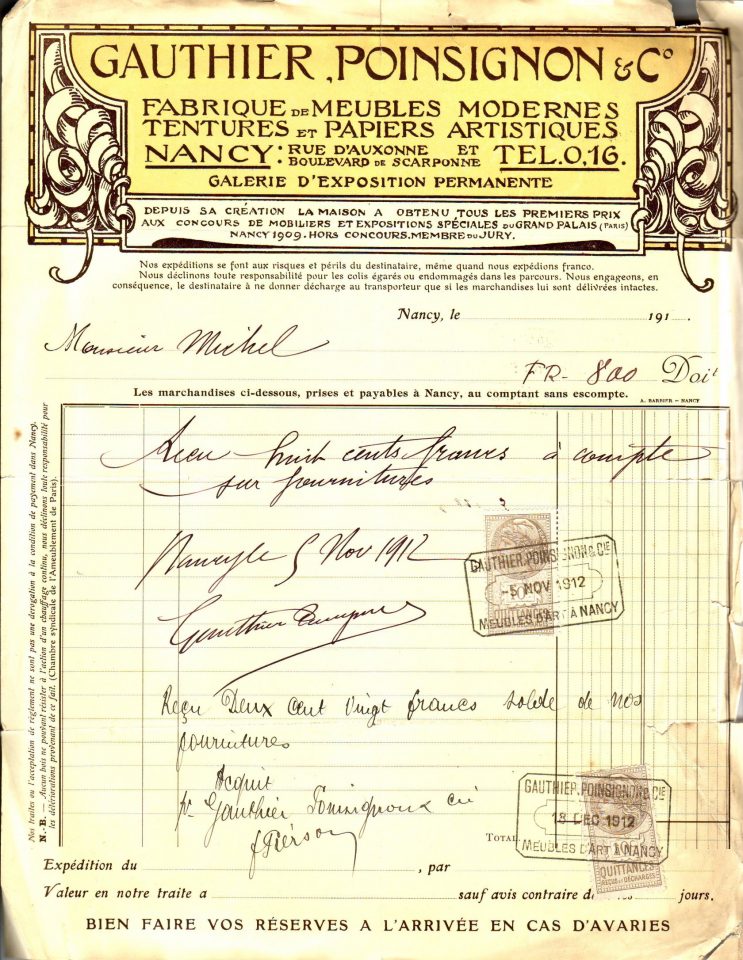 GAUTHIER, POINSIGNON & Cº
FABRIQUE DE MEUBLES MODERNES
TENTURES ET PAPIERS ARTISTIQUES
NANCY: RUE D'AUXONNE ET BOULEVARD DE SCARPONNE TEL.0,16.
GALERIE D'EXPOSITION PERMANENTE
DEPUIS SA CRÉATION LA MAISON A OBTENU TOUS LES PREMIERS PRIX
AUX CONCOURS DE MOBILIERS ET EXPOSITIONS SPÉCIALES DU GRAND PALAIS (PARIS)
NANCY 1909. HORS CONCOURS. MEMBRE DU JURY.
Nos expéditions se font aux risques et périls du destinataire, même quand nous expédions franco.
Nous déclinons toute responsabilité pour les colis égarés ou endommagés dans les parcours. Nous engageons, en
conséquence, le destinataire à ne donner décharge au transporteur que si les marchandises lui sont délivrées intactes.
Nancy, le 191
Monsieur Michel
FR- 800 Doit
Les marchandises ci-dessous, prises et payables à Nancy, au comptant sans escompte.
A. BARBIER - NANCY
Reçu huit cents francs à compte
sur fournitures
Nancy le 5 Nov 1912
GAUTHIER, POINSIGNON & CIE
-5 NOV 1912
MEUBLES D'ART À NANCY
QUITTANCES
Gauthier
Reçu Deux cent vingt francs solde de nos
fournitures
Acquit
pr Gauthier Poinsignon & Cie
Pierson
GAUTHIER, POINSIGNON & CIE
18 DEC 1912
MEUBLES D'ART À NANCY
QUITTANCES
REÇUS ET DÉCHARGES
TOTAL
Expédition du , par
Valeur en notre traite a sauf avis contraire jours.
BIEN FAIRE VOS RÉSERVES A L'ARRIVÉE EN CAS D'AVARIES
Nos traites ou l'acceptation de règlement ne sont pas une dérogation à la condition de payement dans Nancy.
N.-B. — Aucun bois ne pouvant résister à l'action d'un chauffage continu, nous déclinons toute responsabilité pour
les détériorations provenant de ce fait. (Chambre syndicale de l'Ameublement de Paris).